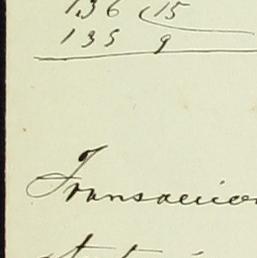 136 15
135 9
Transaccion